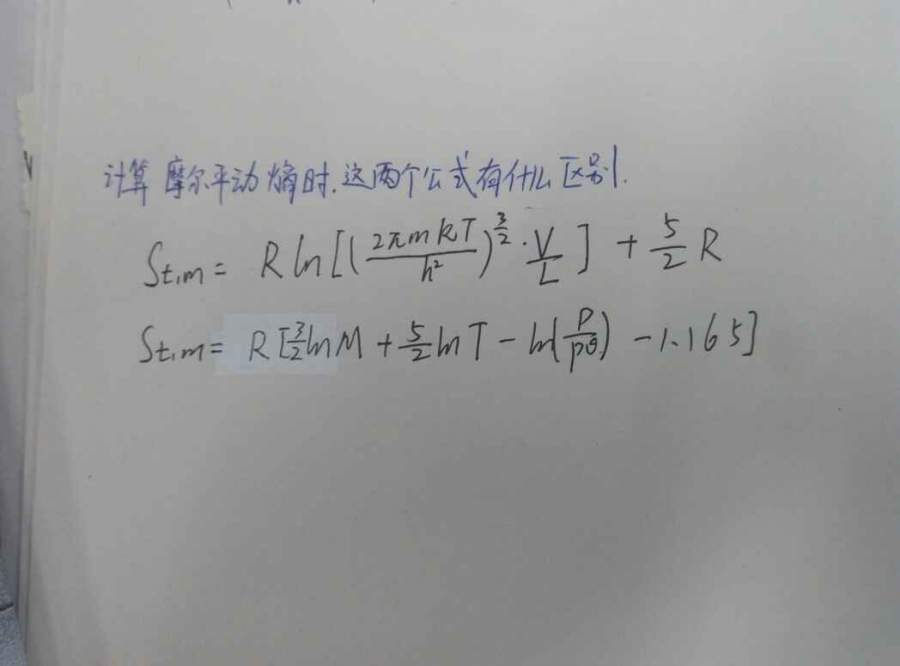 计算摩尔平动熵时.这两个公式有什么区别.
St,m = R ln[(2πmkT/h²)^(3/2) · V/L] + 5/2 R
St,m = R[3/2 lnM + 5/2 lnT - ln(P/P^θ) - 1.165]